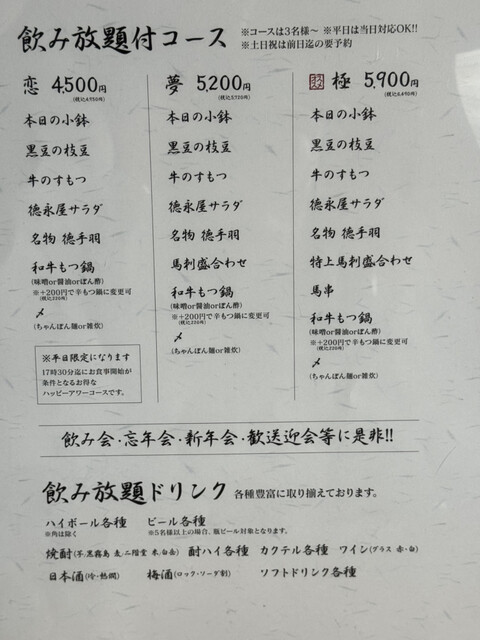 飲み放題付コース
※コースは3名様〜 ※平日は当日対応OK!!
※土日祝は前日迄の要予約
恋 4,500円
(税込4,950円)
本日の小鉢
黒豆の枝豆
牛のすもつ
徳永屋サラダ
名物 徳手羽
和牛もつ鍋
(味噌or醤油orぽん酢)
※+200円で辛もつ鍋に変更可
(税込220円)
〆
(ちゃんぽん麺or雑炊)
※平日限定になります
17時30分迄にお食事開始が
条件となるお得な
ハッピーアワーコースです。
夢 5,200円
(税込5,720円)
本日の小鉢
黒豆の枝豆
牛のすもつ
徳永屋サラダ
名物 徳手羽
馬刺盛合わせ
和牛もつ鍋
(味噌or醤油orぽん酢)
※+200円で辛もつ鍋に変更可
(税込220円)
〆
(ちゃんぽん麺or雑炊)
極 5,900円
(税込6,490円)
本日の小鉢
黒豆の枝豆
牛のすもつ
徳永屋サラダ
名物 徳手羽
特上馬刺盛合わせ
馬串
和牛もつ鍋
(味噌or醤油orぽん酢)
※+200円で辛もつ鍋に変更可
(税込220円)
〆
(ちゃんぽん麺or雑炊)
飲み会・忘年会・新年会・歓送迎会等に是非!!
飲み放題ドリンク 各種豊富に取り揃えております。
ハイボール各種 ビール各種
※角は除く ※5名様以上の場合、瓶ビール対象となります。
焼酎(芋:黒霧島 麦:二階堂 米:白岳) 酎ハイ各種 カクテル各種 ワイン(グラス 赤・白)
日本酒(冷・熱燗) 梅酒(ロック・ソーダ割) ソフトドリンク各種